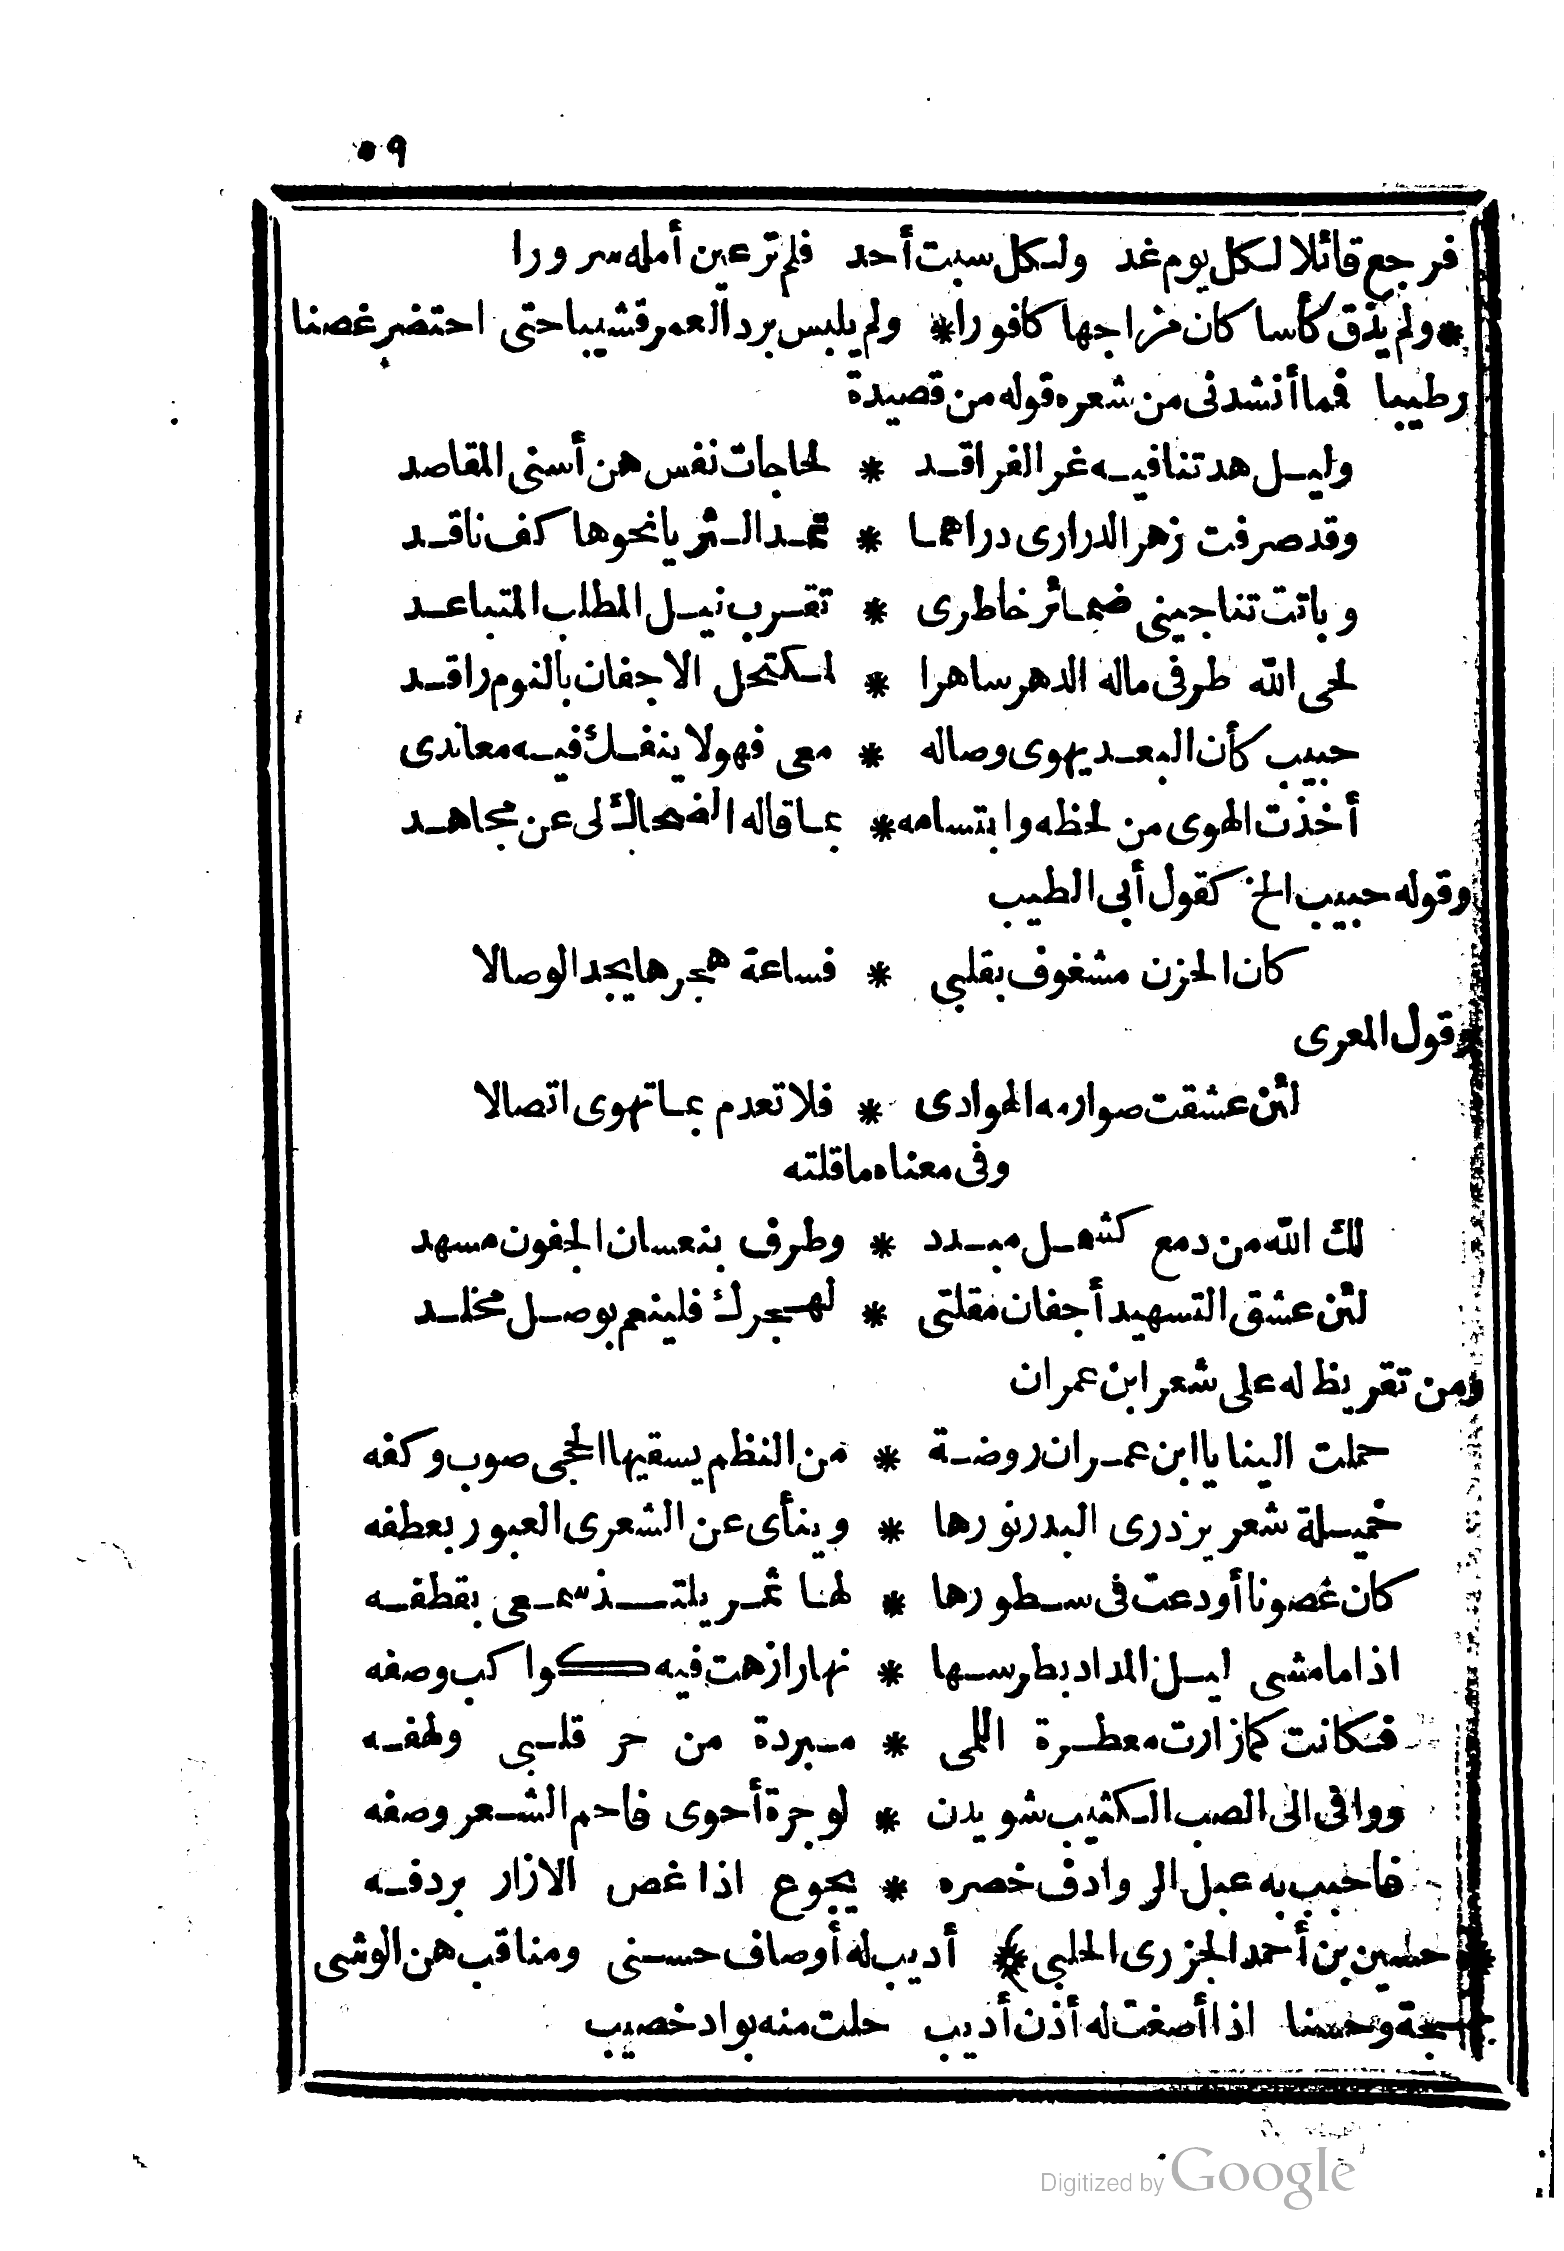 ٥٩
فرجع قائلا لكل يوم غد ولكل سبت أحد فلم تر عين أمله سرورا
* ولم يذق كأسا كان مزاجها كافورا * ولم يلبس برد العمر قشيبا حتى احتضر غصنا
رطيبا فما أنشدنى من شعره قوله من قصيدة
وليل هدتنا فيه غر الفراقد * لحاجات نفس هن أسنى المقاصد
وقد صرفت زهر الدرارى دراهما * تمد الثريا نحوها كف ناقد
وباتت تناجينى ضمائر خاطرى * تقرب نيل المطلب المتباعد
لحى الله طرفى ماله الدهر ساهرا * لمكتحل الاجفان بالنوم راقد
حبيب كأن البعد يهوى وصاله * معى فهو لا ينفك فيه معاندى
أخذت الهوى من لحظه وابتسامه * بما قاله الضحاك لى عن مجاهد
وقوله حبيب الخ كقول أبى الطيب
كان الحزن مشغوف بقلبى * فساعة هجرها يجد الوصالا
وقول المعرى
لئن عشقت صوارمه الهوادى * فلا تعدم بما تهوى اتصالا
وفى معناه ما قلته
لك الله من دمع كشمل مبدد * وطرف بنعسان الجفون مسهد
لئن عشق التسهيد أجفان مقلتى * لهجرك فلينعم بوصل مخلد
ومن تقريظ له على شعر ابن عمران
حملت الينا يا ابن عمران روضة * من النظم يسقيها الحجى صوب وكفه
خميلة شعر يزدرى البدر نورها * وينأى عن الشعرى العبور بعطفه
كان غصونا أودعت فى سطورها * لهنا ثمر يلتذ سمعى بقطفه
اذا ما مشى ليل المداد بطرسها * نهارا زهت فيه كواكب وصفه
فكانت كما زارت معطرة اللمى * مبردة من حر قلبى ولهفه
ووافى الى الصب الكئيب شويدن * لوجرة أحوى فاحم الشعر وصفه
فاحبب به عبل الروادف خصره * يجوع اذا غص الازار بردفه
* حسين بن أحمد الجزرى الحلبى * أديب له أوصاف حسنى ومناقب هن الوشى
بهجة وحسنا اذا أصغت له أذن أديب حلت منه بواد خصيب
Digitized by Google